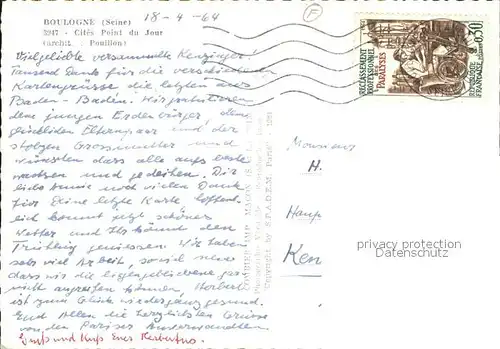 BOULOGNE (Seine)
18-4-64
3247 - Cités Point du Jour
(archit. Pouillon)
F
Vielgeliebte versammelte Kenzinger!
Tausend Dank für die verschiedenen
Kartengrüsse die letzten aus
Baden-Baden. Wir gratulieren
dem jungen Erdenbürger, den
glücklichen Elternpaar und der
stolzen Grossmutter und
wünschen dass alle aufs beste
wachsen und gedeihen. Dir
liebe noch vielen Dank
für Deine letzte Karte hoffent-
lich kommt jetzt schönes
Wetter und Ihr könnt den
Frühling geniessen. Wir haben
sehr viel Arbeit, so viel
dass wir die liegengebliebene gar
nicht angreifen können, Herbert
ist zum Glück wieder ganz gesund.
Euch allen die herzlichsten Grüsse
von den Pariser Anverwandten
Gruß und Kuß Euer
RECLASSEMENT
PROFESSIONNEL
des PARALYSÉS
0,20
RÉPUBLIQUE FRANÇAISE
COMBIER IMP. MACON
Copyright by S.P.A.D.E.M. Paris
Monsieur
H.
Haup
Ken
privacy protection
Datenschutz